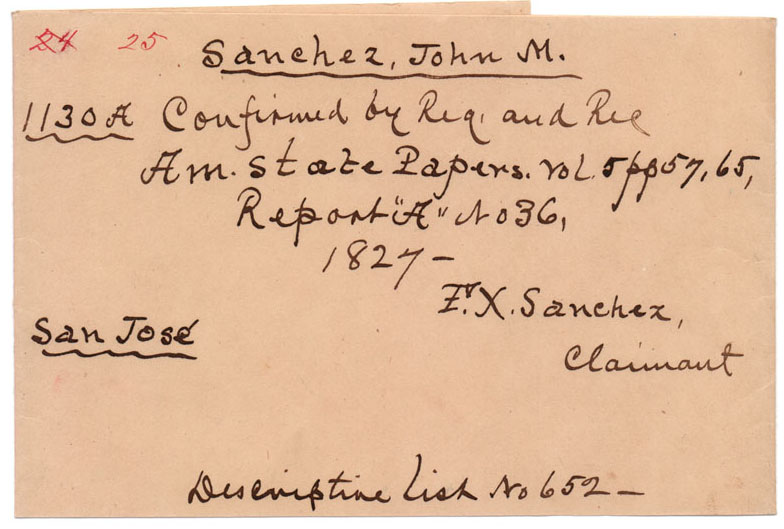 24 25
Sanchez, John M.
1130 A Confirmed by Reg. and Rec
Am. State Papers. Vol. 5 pp 57, 65,
Report "A" No 36,
1827 —
F. X. Sanchez,
San José
Claimant
Descriptive List No 652 —